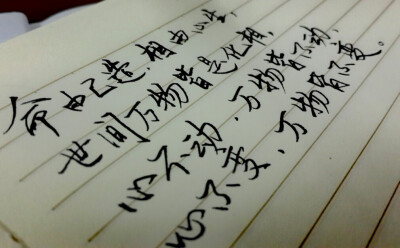 命由己造,相由心生,
世间万物皆是化相,
心不动,万物皆不动,
心不变,万物皆不变。